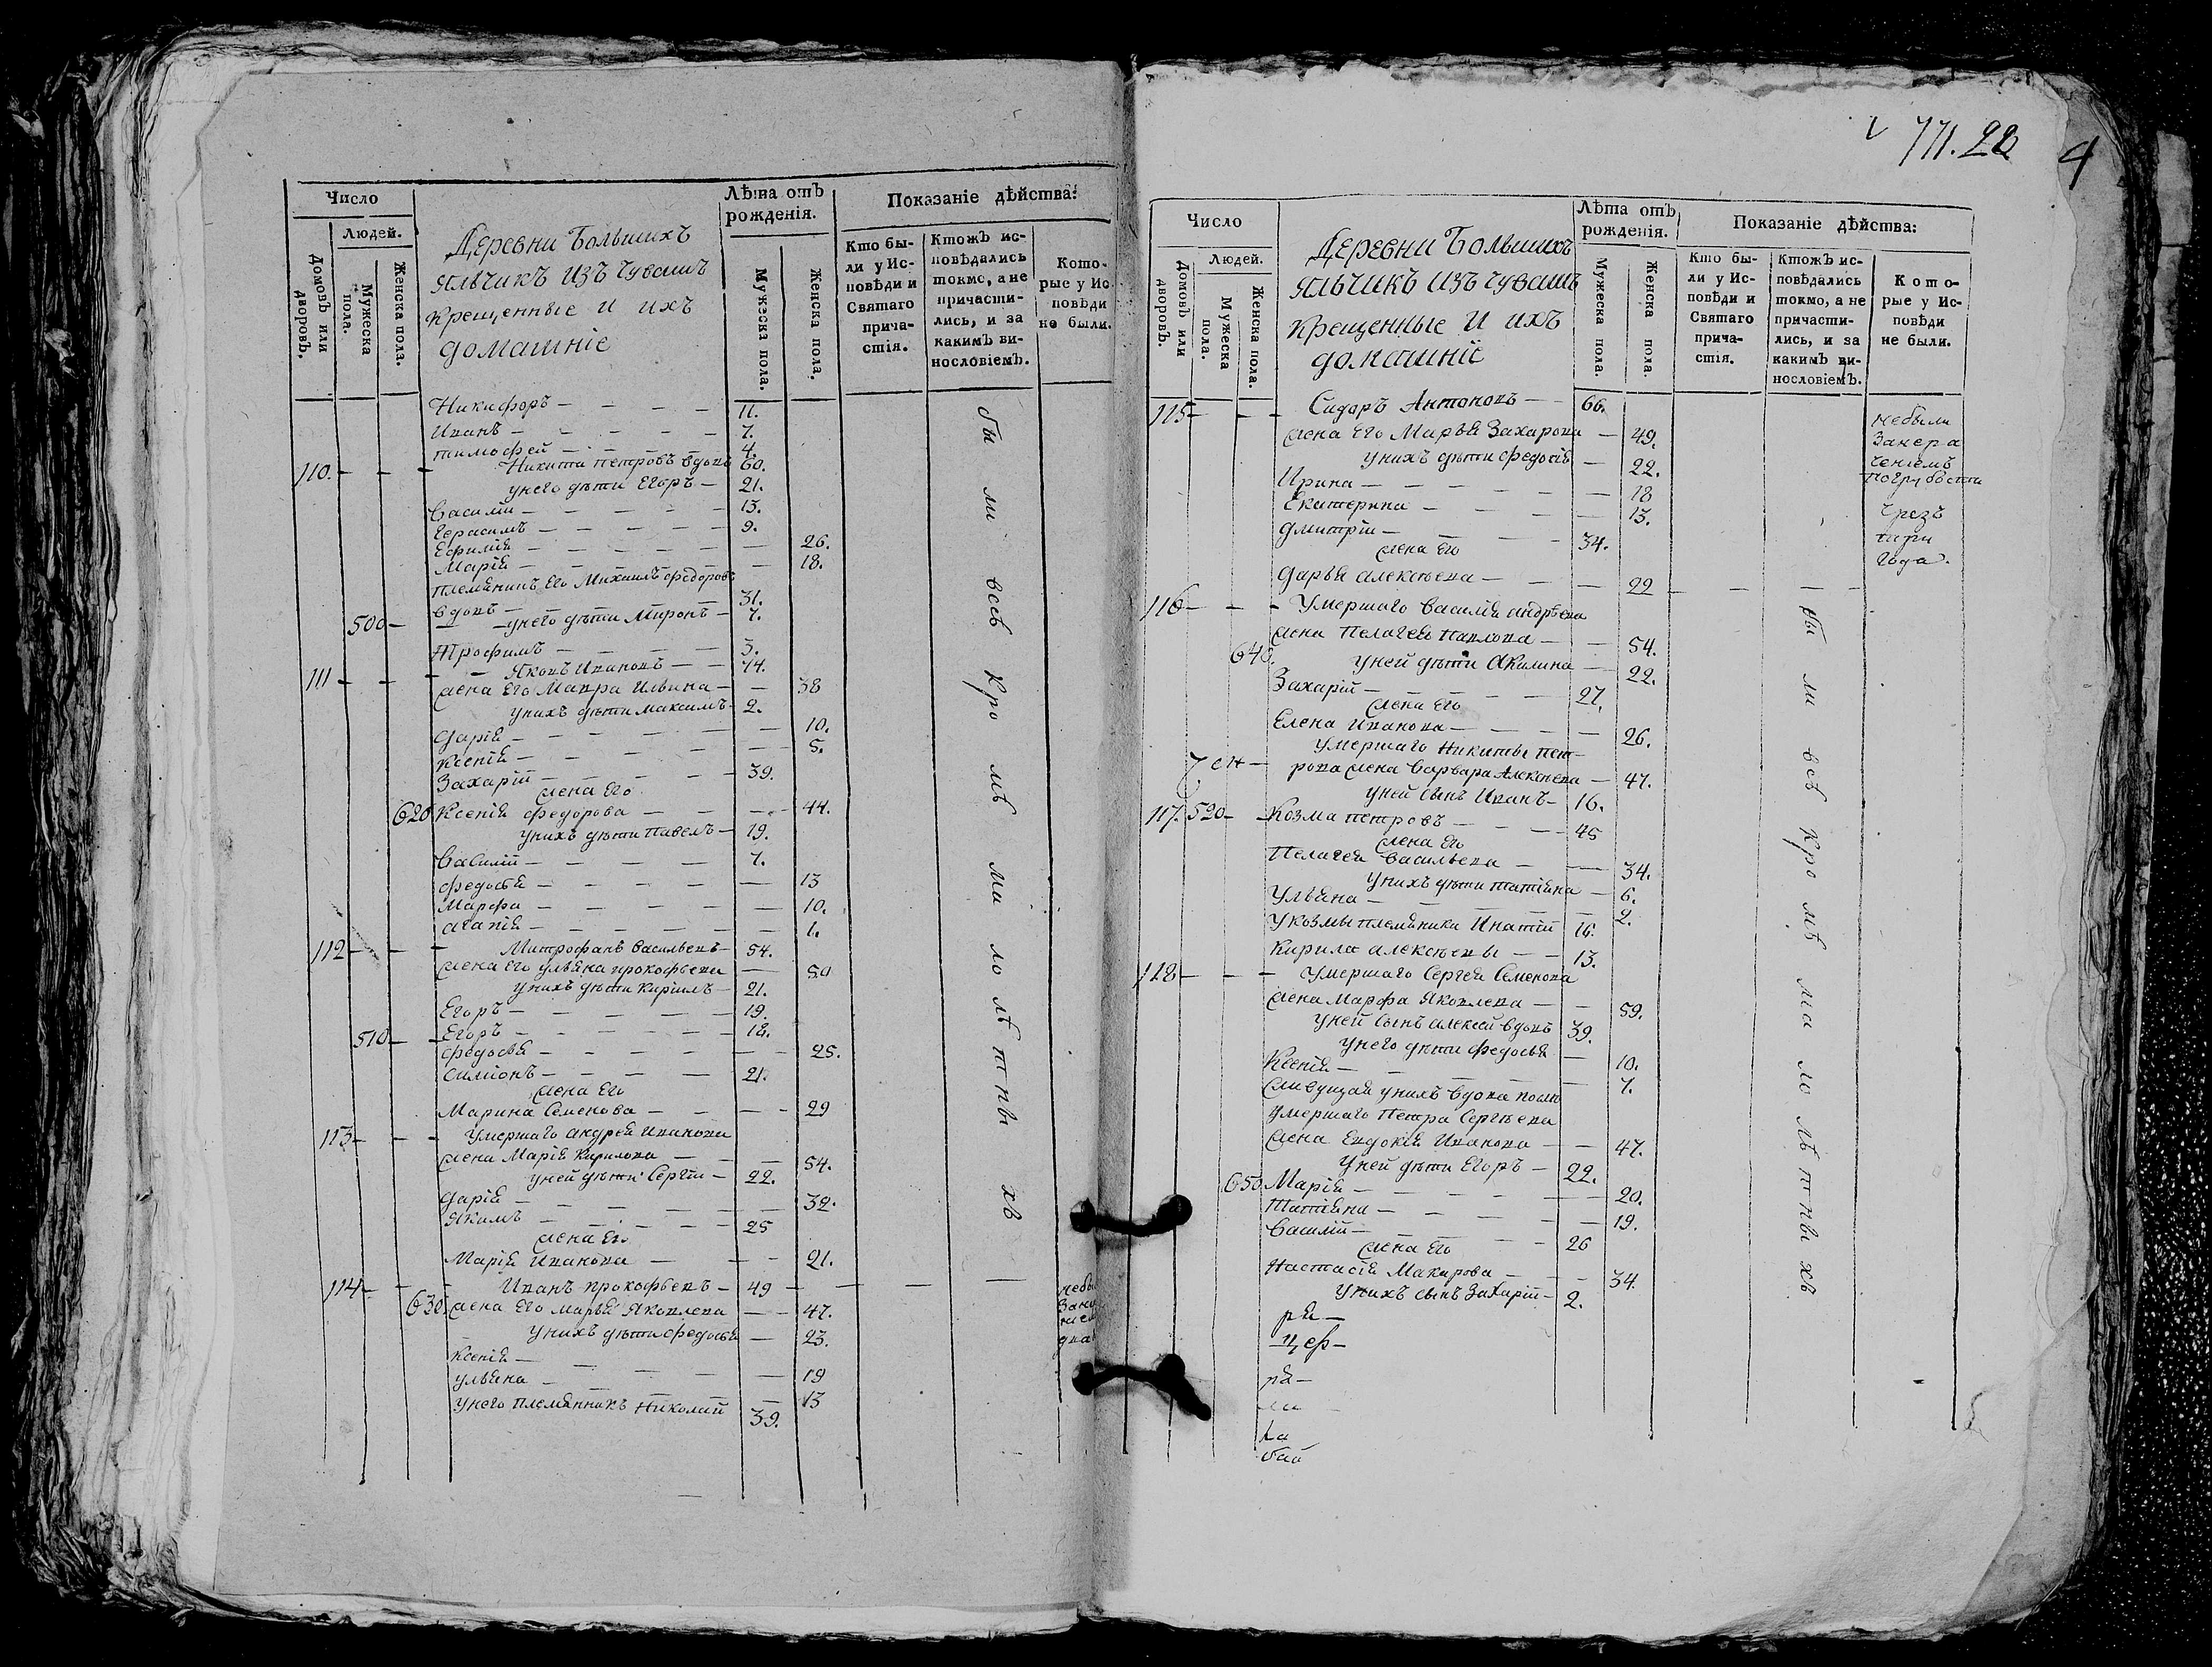 Число
Людей.
Домовъ или дворовъ.
Мужеска пола.
Женска пола.
Деревни Большихъ
яльчикъ изъ чувашъ
крещенные и ихъ
домашніе
Лѣта отъ рожденія.
Мужеска пола.
Женска пола.
Показаніе дѣйства:
Кто бы-
ли у Ис-
повѣди и
Святаго
прича-
стія.
Ктожъ ис-
повѣдались
токмо, а не
причасти-
лись, и за
какимъ ви-
нословіемъ.
Кото-
рые у Ис
повѣди
не были.
Никифоръ — 11.
Иванъ — 7.
тимофей — 4.
110. Никита петровъ вдовъ 60.
унего дѣти Егоръ — 21.
Василій — 13.
Герасимъ — 9.
Ефимія — 26.
Марія — 18.
племянникъ Его Михаилъ федоровъ
вдовъ — 31.
500 — унего дѣти Миронъ — 7.
Трофимъ — 3.
111 — Яковъ Ивановъ — 44.
жена Его Мавра Ильина — 38
унихъ дѣти максимъ — 2.
Дарія — 10.
Ксенія — 5.
Захарій — 39.
жена Его
620 Ксенія федорова — 44.
унихъ дѣти Павелъ — 19.
Василій — 7.
федосья — 13
Марфа — 10.
агапія — 1.
112 — Митрофанъ Васильевъ — 54.
жена Его ульяна прокофьева — 50
унихъ дѣти Кирилъ — 21.
Егоръ — 19.
510 — Егоръ — 18.
федосья — 25.
симіонъ — 21.
жена Его
Марина Семенова — 29
113 — Умершаго андрея иванова
жена Марія Кирилова — 54.
уней дѣти Сергій — 22.
Дарія — 32.
Якимъ — 25
жена Его
Марія Иванова — 21.
114 — Иванъ прокофьевъ — 49
630 жена Его марья Яковлева — 47.
унихъ дѣти федосья — 23.
Ксенія — 19
ульяна — 13
унего племянникъ Николай 39.
бы ли всѣ кро мѣ ма ло лѣ тны хъ
771. 22
4
Число
Людей.
Домовъ или дворовъ.
Мужеска пола.
Женска пола.
Деревни Большихъ
яльчикъ изъ чувашъ
крещенные и ихъ
домашніе
Лѣта отъ рожденія.
Мужеска пола.
Женска пола.
Показаніе дѣйства:
Кто бы-
ли у Ис-
повѣди и
Святаго
прича-
стія.
Ктожъ ис-
повѣдались
токмо, а не
причасти-
лись, и за
какимъ ви-
нословіемъ.
Кото-
рые у Ис-
повѣди
не были.
115 — Сидоръ Антоновъ — 66.
жена Его Марья Захарова — 49.
унихъ дѣти федосія — 22.
Ирина — 18
Екатерина — 13.
Дмитрій — 34.
жена Его
Дарья алексѣева — 22
небыли
Занера
ченіемъ
Погрубости
чрезъ
три
Года.
116 — Умершаго Василія андрѣева
жена Пелагея павлова — 54.
640. уней дѣти Акилина — 22.
Захарій — 27.
жена Его
Елена Иванова — 26.
умершаго Никиты пет-
рова жена варвара Алексѣева — 47.
уней сынъ Иванъ — 16.
117. 520 — Козма петровъ — 45
жена Его
Пелагея Васильева — 34.
унихъ дѣти татіяна — 6.
Ульяна — 2.
Укозмы племяники Игнатій 16.
Кирила алексѣевы — 13.
118 — Умершаго Сергея Семенова
жена Марфа Яковлева — 59.
уней сынъ алексей вдовъ 39.
унего дѣти федосья — 10.
Ксенія — 7.
Живущая унихъ вдова
умершаго Петра Сергѣева
жена Евдокія Иванова — 47.
уней дѣти Егоръ — 22.
650 Марія — 20.
Татіяна — 19.
Василій — 26
жена Его
Настасія Макарова — 34.
унихъ сынъ Захарій — 2.
бы ли всѣ кро мѣ ма ло лѣ тны хъ